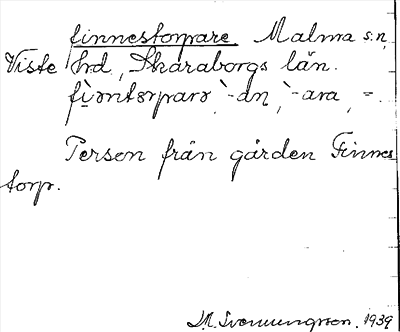 finnestorpare Malma sn,
Viste hd, Skaraborgs län.
fìǝntɔrparǝ `-ǝn, `-ara, =.
Person från gården Finnes
torp.
1939